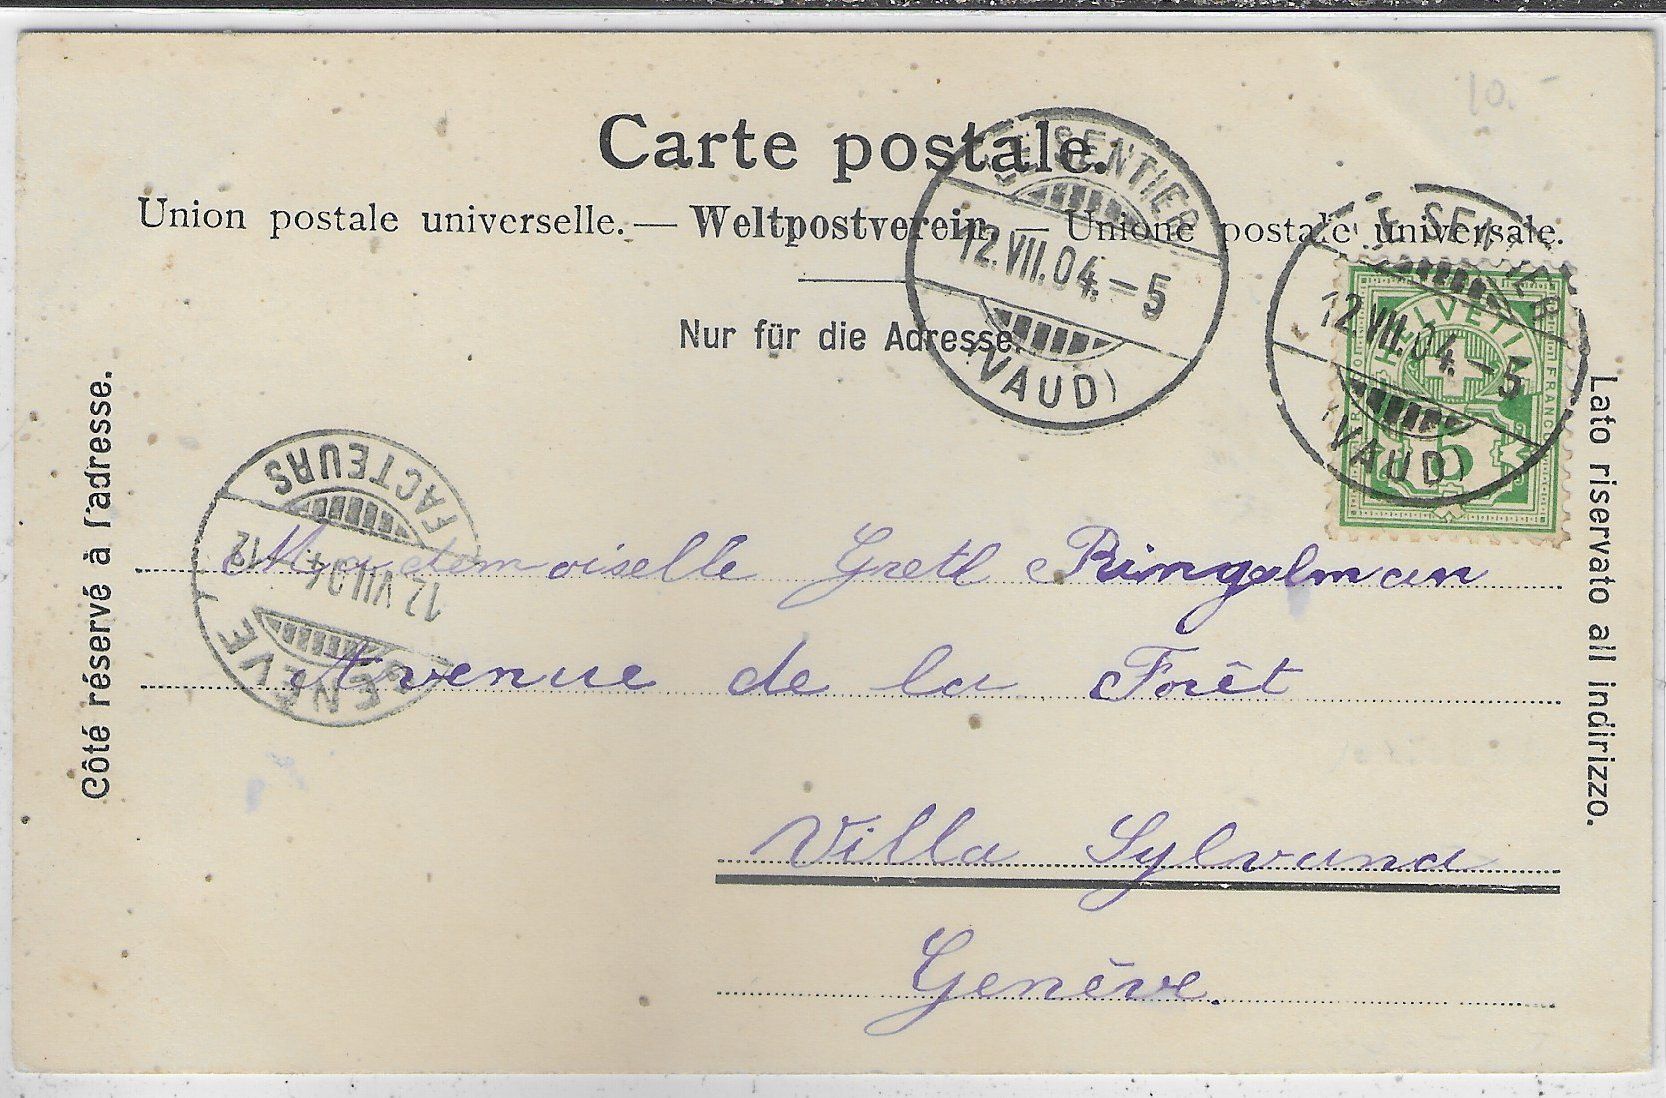 10.-
Carte postale.
Union postale universelle. — Weltpostverein. — Unione postale universale.
Nur für die Adresse.
Côté réservé à l'adresse.
Lato riservato all indirizzo.
LE SENTIER
12.VII.04.-5
(VAUD)
LE SENTIER
12.VII.04.-5
(VAUD)
HELVETIA
FRANCO
5
FACTEURS
12.VII.04.-12
GENÈVE
Mademoiselle Gretl Ringelman
Avenue de la Forêt
Villa Sylvana
Genève.